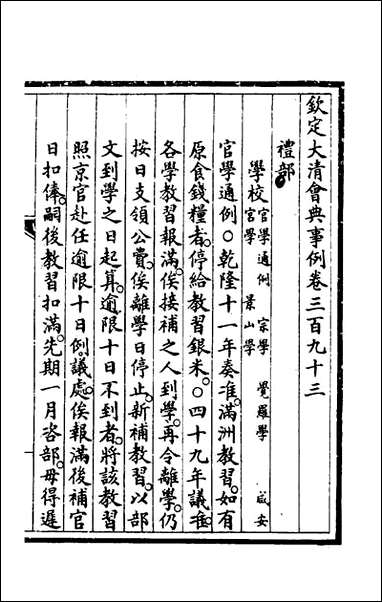 欽定大清會典事例卷三百九十三
禮部
學校 官學通例 宗學 覺羅學 咸安
宮學 景山學
官學通例〇乾隆十一年奏准。滿洲教習。如有
原食錢糧者。停給教習銀米。〇四十九年議准。
各學教習報滿。俟接補之人到學。再令離學。仍
按日支領公費。俟離學日停止。新補教習。以部
文到學之日起算。逾限十日不到者。將該教習
照京官赴任逾限十日例。議處。俟報滿後補官
日扣俸。嗣後教習扣滿。先期一月咨部。毋得遲